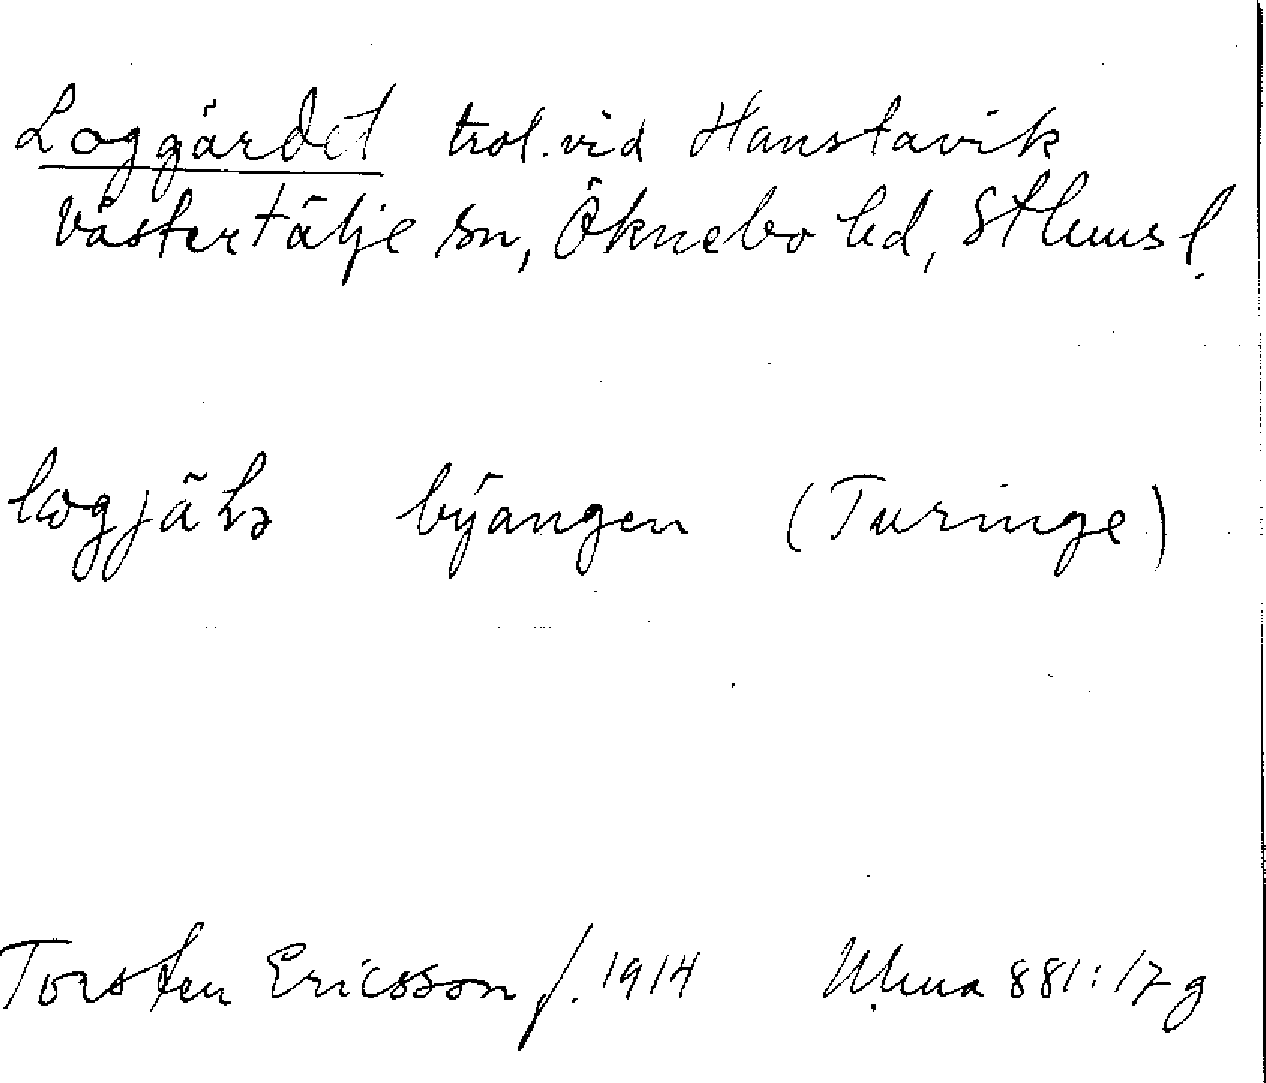 Loggärdet trol. vid Hanstavik
Västertälje sn, Öknebo hd, Sthms l.
býangen (Turinge)
Torsten Ericsson f. 1914 Ulma 881:17 g